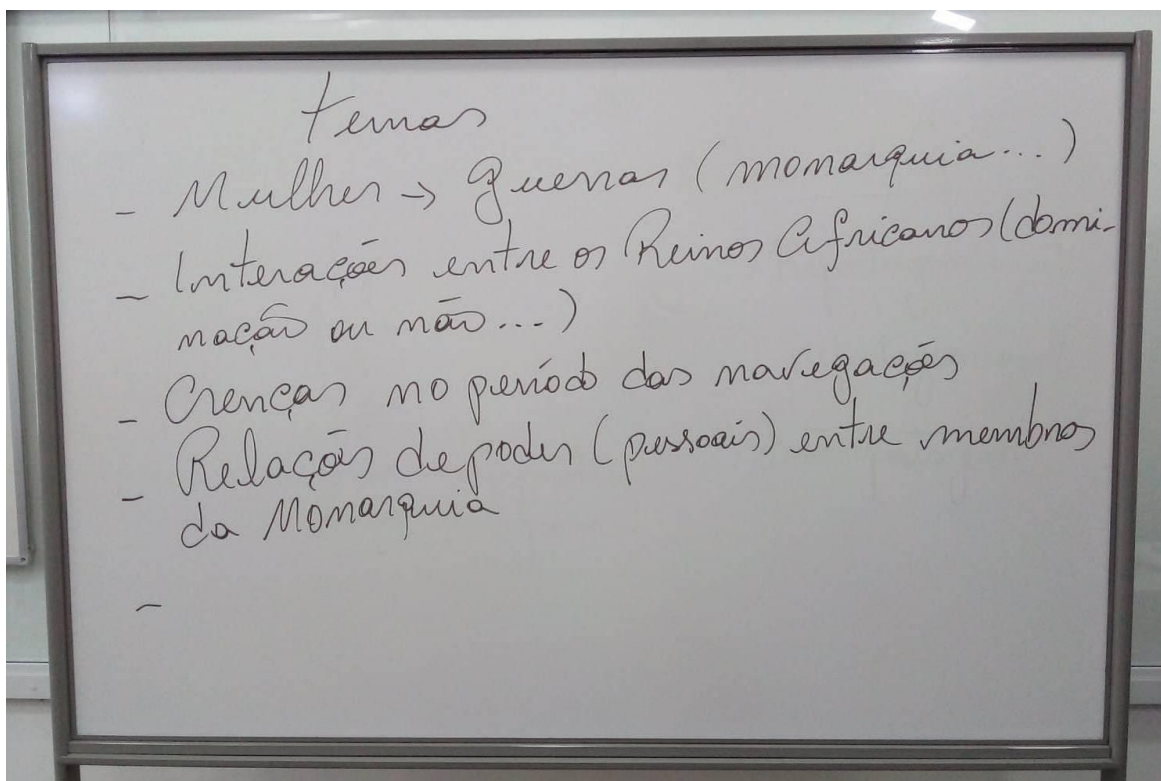 temas
- Mulher → guerras (monarquia...)
- Interações entre os Reinos Africanos (domi-
nação ou não...)
- Crenças no período das navegações
- Relações de poder (pessoais) entre membros
da Monarquia
-